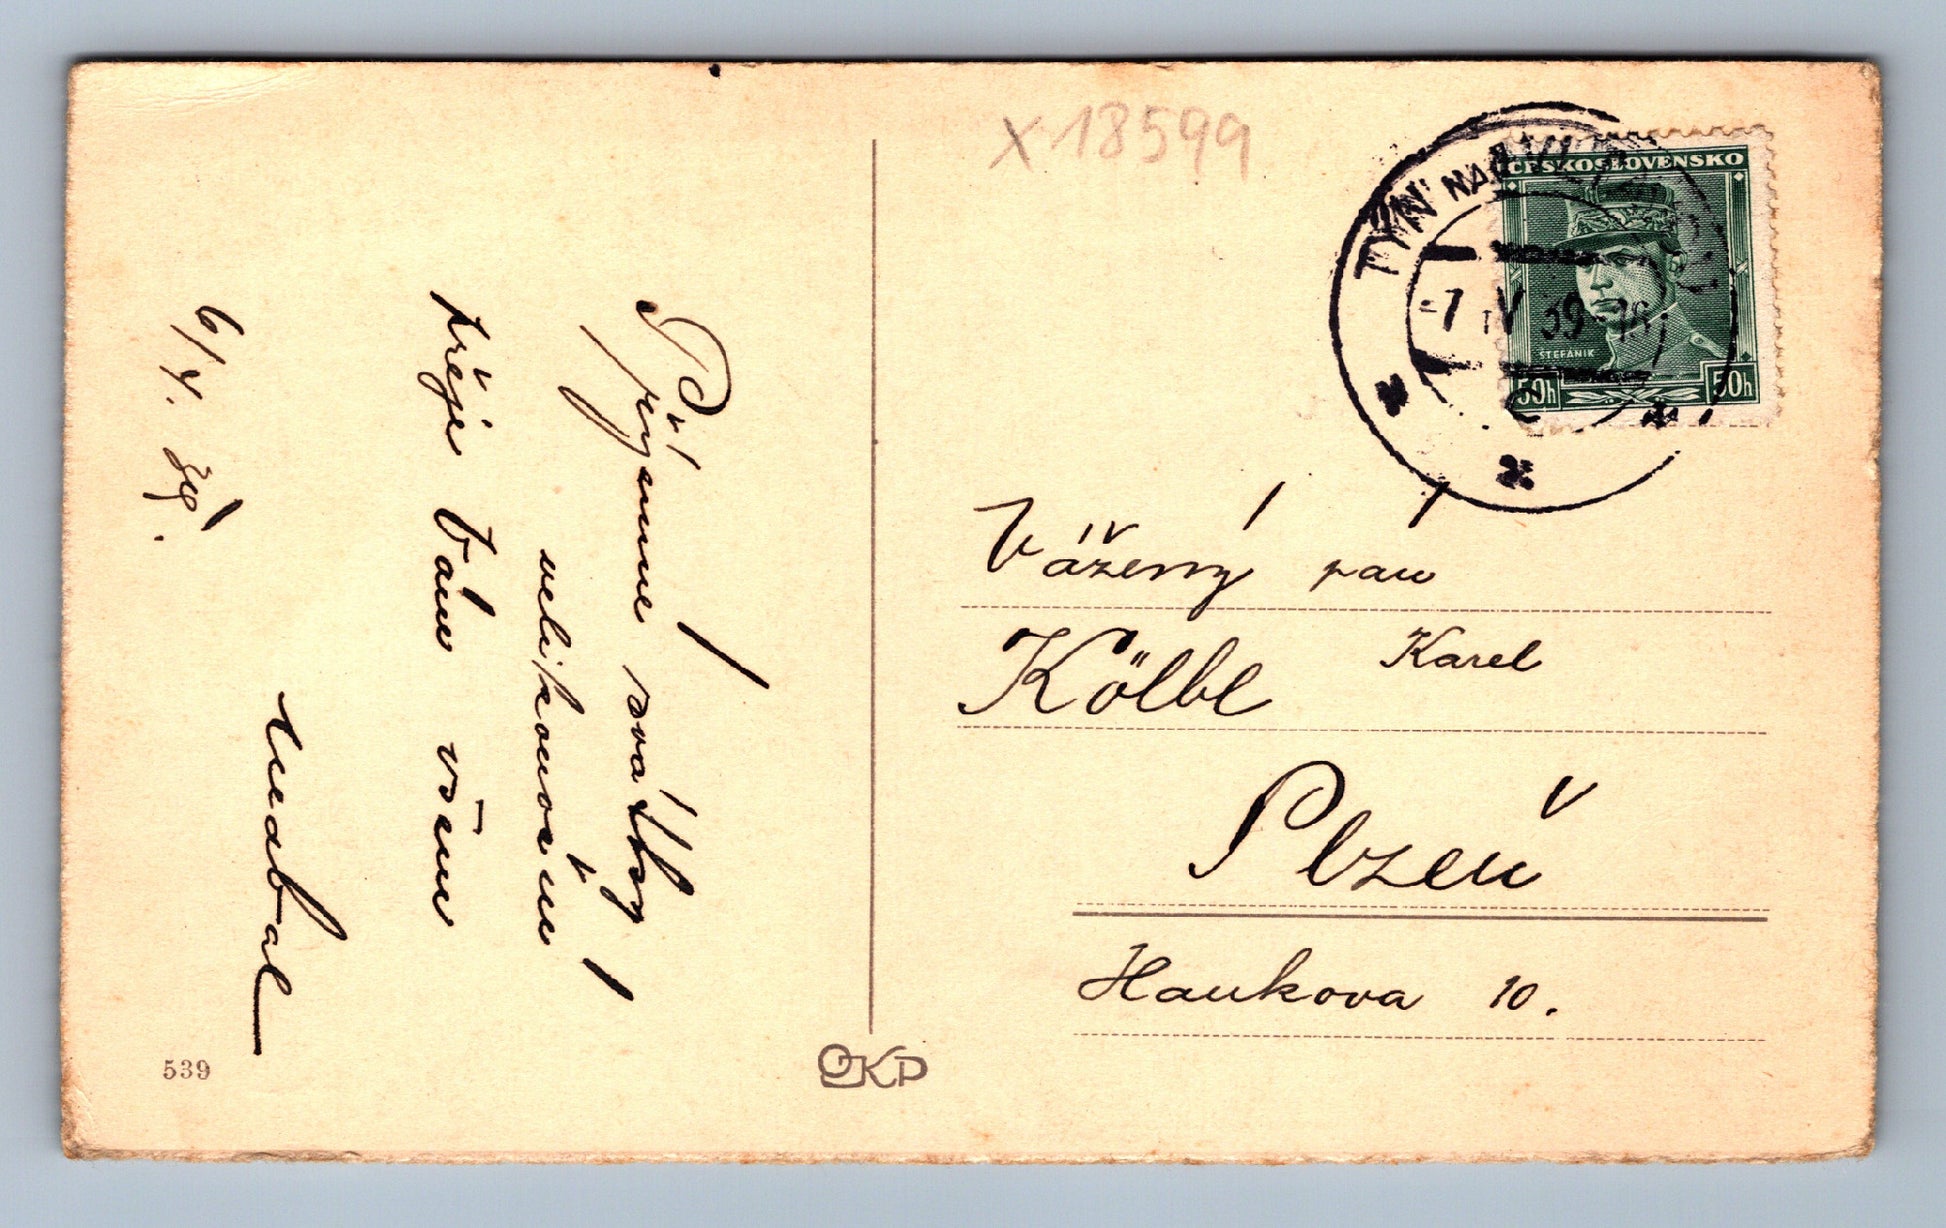 Příjemné svátky
velikonoční
přeje Vám všem
Nedbal
6/4. 39.
539
X 18599
TÝN NAD VLTAVOU
-7 IV 39-16
ČESKOSLOVENSKO
ŠTEFÁNIK
50h 50h
Vážený pan
Kölbl Karel
Plzeň
Hankova 10.